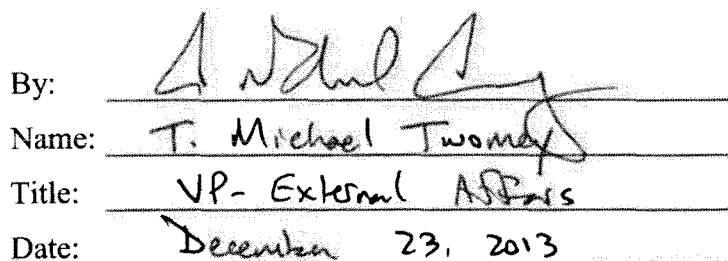 By: T Michael Twomey
Name: T. Michael Twomey
Title: VP- External Affairs
Date: December 23, 2013